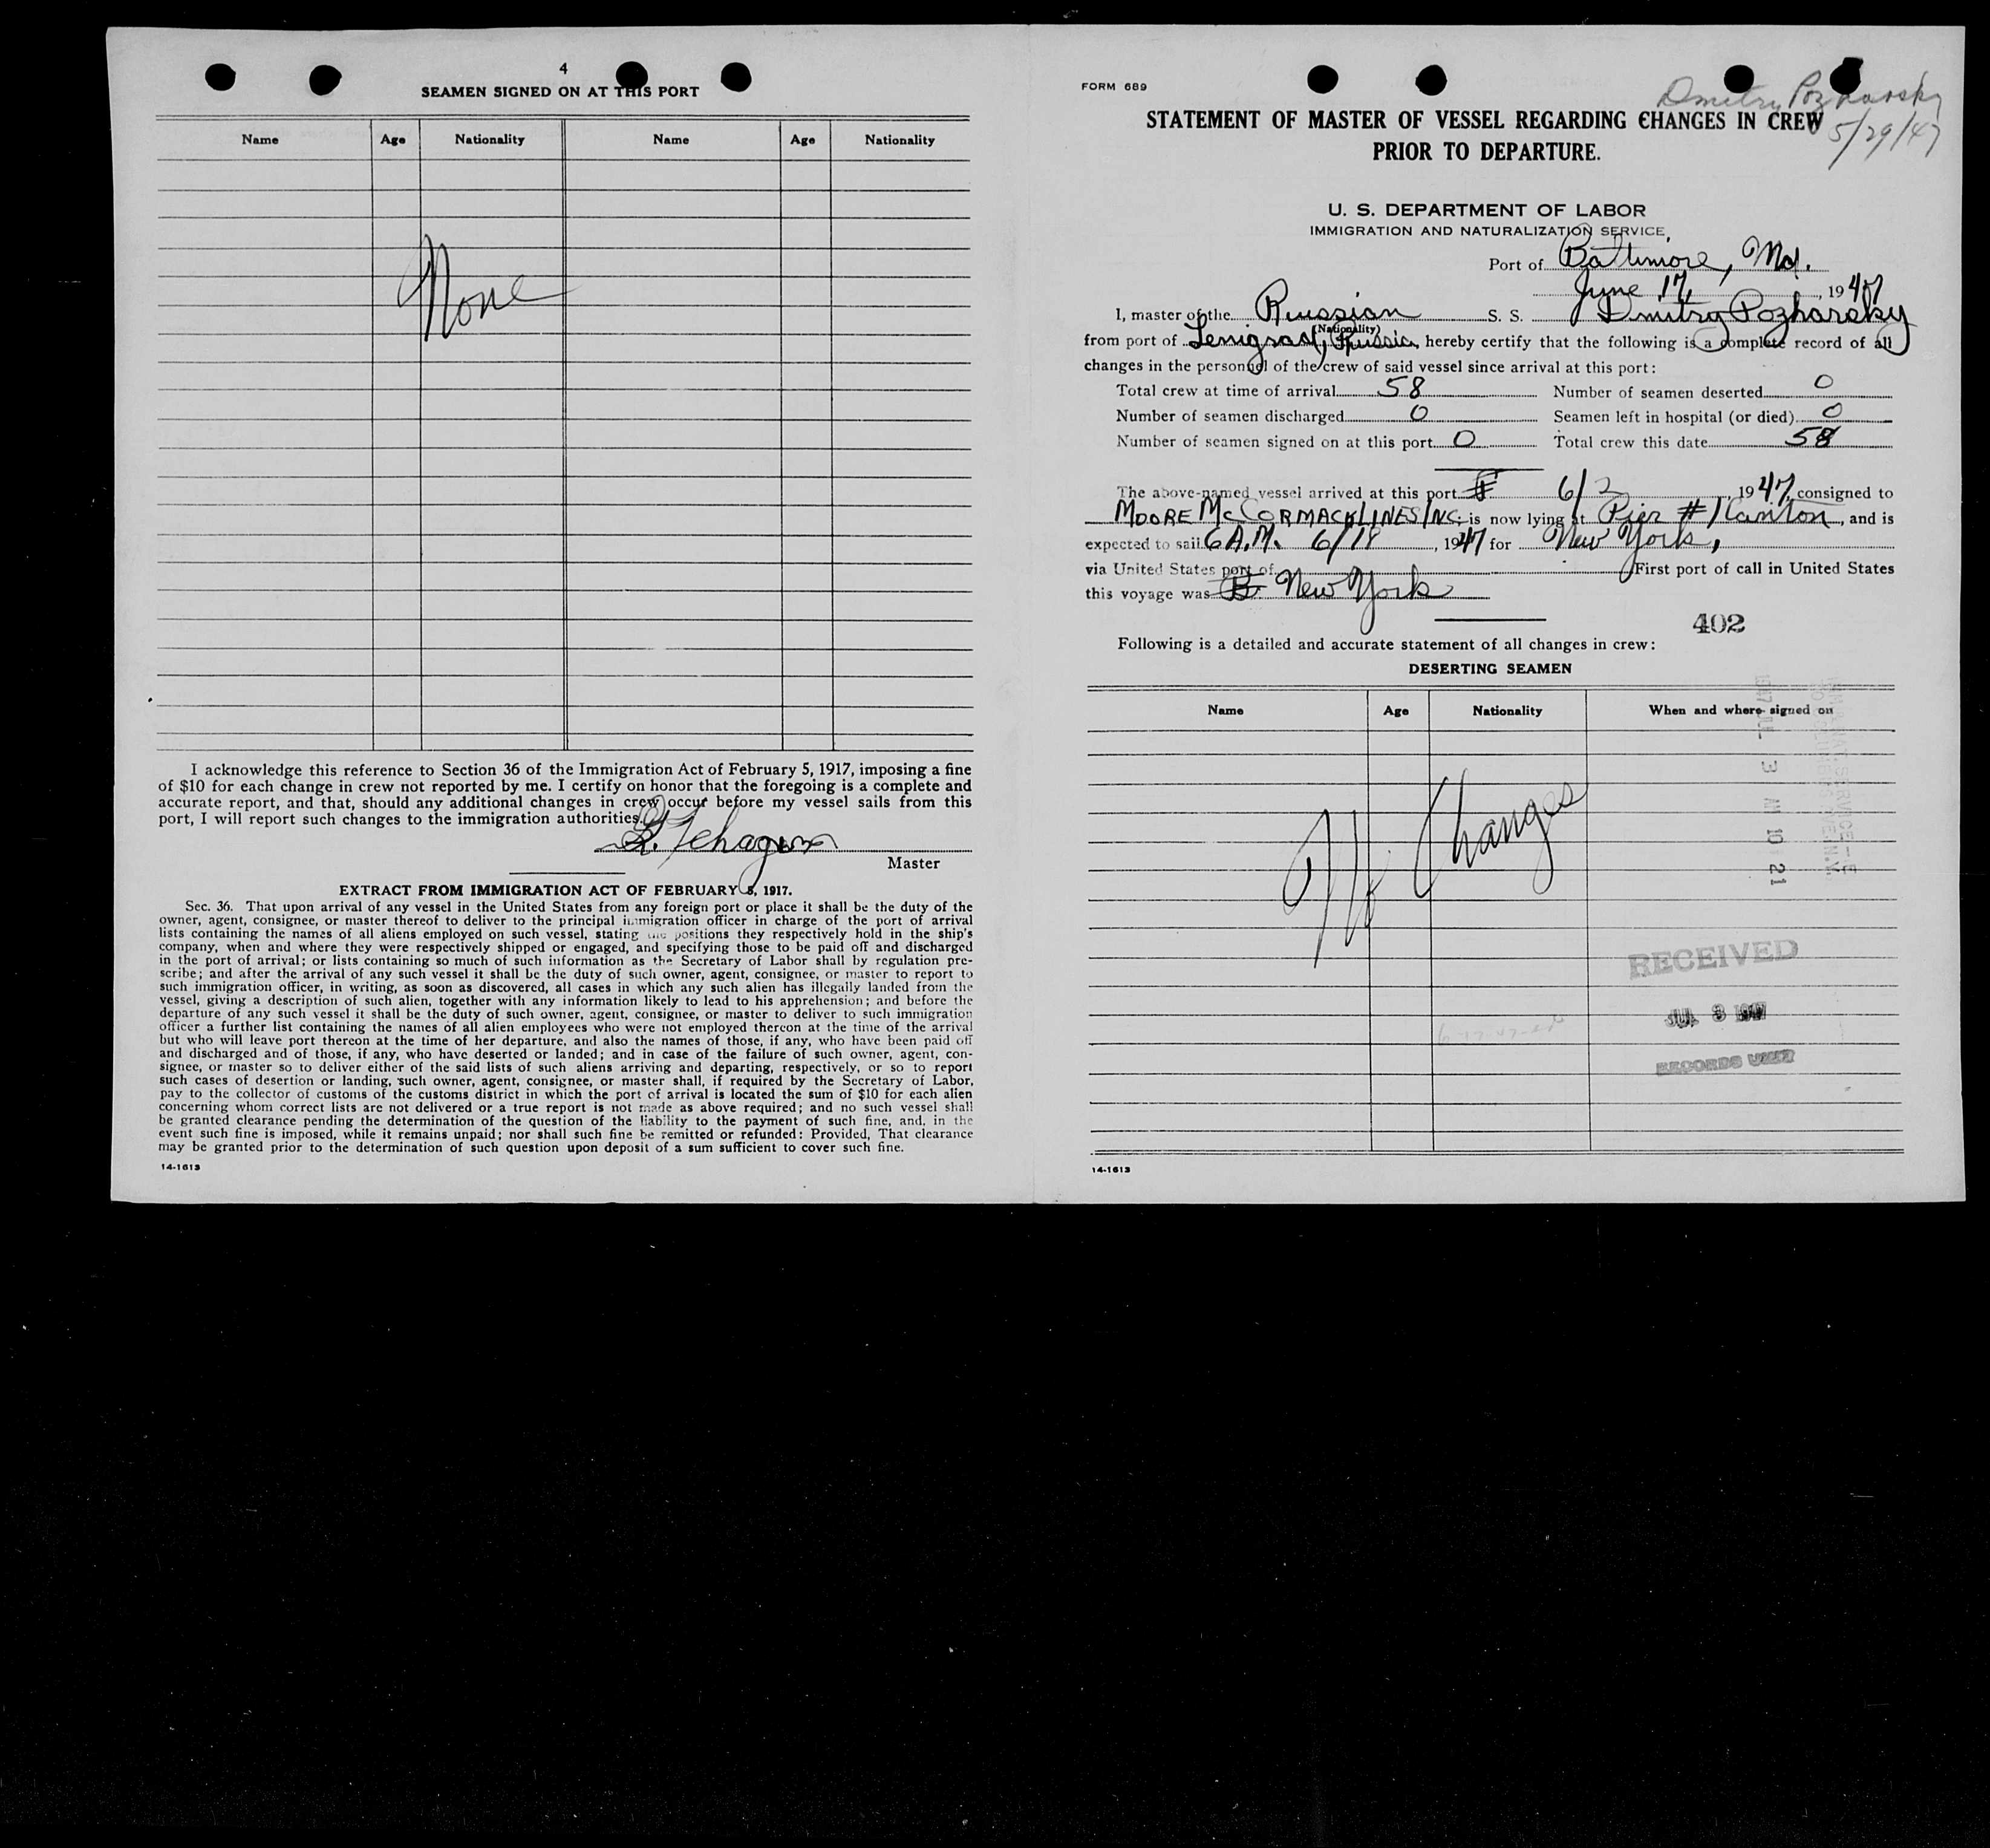 4
SEAMEN SIGNED ON AT THIS PORT
Name Age Nationality Name Age Nationality
None
I acknowledge this reference to Section 36 of the Immigration Act of February 5, 1917, imposing a fine
of $10 for each change in crew not reported by me. I certify on honor that the foregoing is a complete and
accurate report, and that, should any additional changes in crew occur before my vessel sails from this
port, I will report such changes to the immigration authorities.
Master
EXTRACT FROM IMMIGRATION ACT OF FEBRUARY 5, 1917.
Sec. 36. That upon arrival of any vessel in the United States from any foreign port or place it shall be the duty of the
owner, agent, consignee, or master thereof to deliver to the principal immigration officer in charge of the port of arrival
lists containing the names of all aliens employed on such vessel, stating the positions they respectively hold in the ship's
company, when and where they were respectively shipped or engaged, and specifying those to be paid off and discharged
in the port of arrival; or lists containing so much of such information as the Secretary of Labor shall by regulation pre-
scribe; and after the arrival of any such vessel it shall be the duty of such owner, agent, consignee, or master to report to
such immigration officer, in writing, as soon as discovered, all cases in which any such alien has illegally landed from the
vessel, giving a description of such alien, together with any information likely to lead to his apprehension; and before the
departure of any such vessel it shall be the duty of such owner, agent, consignee, or master to deliver to such immigration
officer a further list containing the names of all alien employees who were not employed thereon at the time of the arrival
but who will leave port thereon at the time of her departure, and also the names of those, if any, who have been paid off
and discharged and of those, if any, who have deserted or landed; and in case of the failure of such owner, agent, con-
signee, or master so to deliver either of the said lists of such aliens arriving and departing, respectively, or so to report
such cases of desertion or landing, such owner, agent, consignee, or master shall, if required by the Secretary of Labor,
pay to the collector of customs of the customs district in which the port of arrival is located the sum of $10 for each alien
concerning whom correct lists are not delivered or a true report is not made as above required; and no such vessel shall
be granted clearance pending the determination of the question of the liability to the payment of such fine, and, in the
event such fine is imposed, while it remains unpaid; nor shall such fine be remitted or refunded: Provided, That clearance
may be granted prior to the determination of such question upon deposit of a sum sufficient to cover such fine.
14-1613
FORM 689
Dmitry Pozharsky
5/29/47
STATEMENT OF MASTER OF VESSEL REGARDING CHANGES IN CREW
PRIOR TO DEPARTURE.
U. S. DEPARTMENT OF LABOR
IMMIGRATION AND NATURALIZATION SERVICE,
Port of Baltimore, Md.
June 17, , 1947
I, master of the Russian S. S. Dmitry Pozharsky
(Nationality)
from port of Lenigrad, Russia, hereby certify that the following is a complete record of all
changes in the personnel of the crew of said vessel since arrival at this port:
Total crew at time of arrival 58 Number of seamen deserted 0
Number of seamen discharged 0 Seamen left in hospital (or died) 0
Number of seamen signed on at this port 0 Total crew this date 58
The above-named vessel arrived at this port 6/2 , 1947, consigned to
MOORE McCORMACK LINES INC. is now lying at Pier #1 Canton, and is
expected to sail 6 A.M. 6/18 , 1947 for New York,
via United States port of First port of call in United States
this voyage was New York
402
Following is a detailed and accurate statement of all changes in crew:
DESERTING SEAMEN
Name Age Nationality When and where signed on
1947 JUL 3 AM 10 21
No Changes
RECEIVED
JUL 3 1947
RECORDS UNIT
14-1613